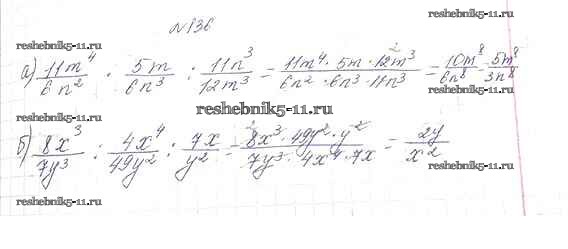 №136
reshebnik5-11.ru reshebnik5-11.ru
а) 11m⁴/6n² · 5m/6n³ : 11n³/12m³ = 11m⁴ · 5m · 12m³/6n² · 6n³ · 11n³ = 10m⁸/6n⁸ = 5m⁸/3n⁸
reshebnik5-11.ru
б) 8x³/7y³ : 4x⁴/49y² : 7x/y² = 8x³ · 49y² · y²/7y³ · 4x⁴ · 7x = 2y/x²
reshebnik5-11.ru reshebnik5-11.ru